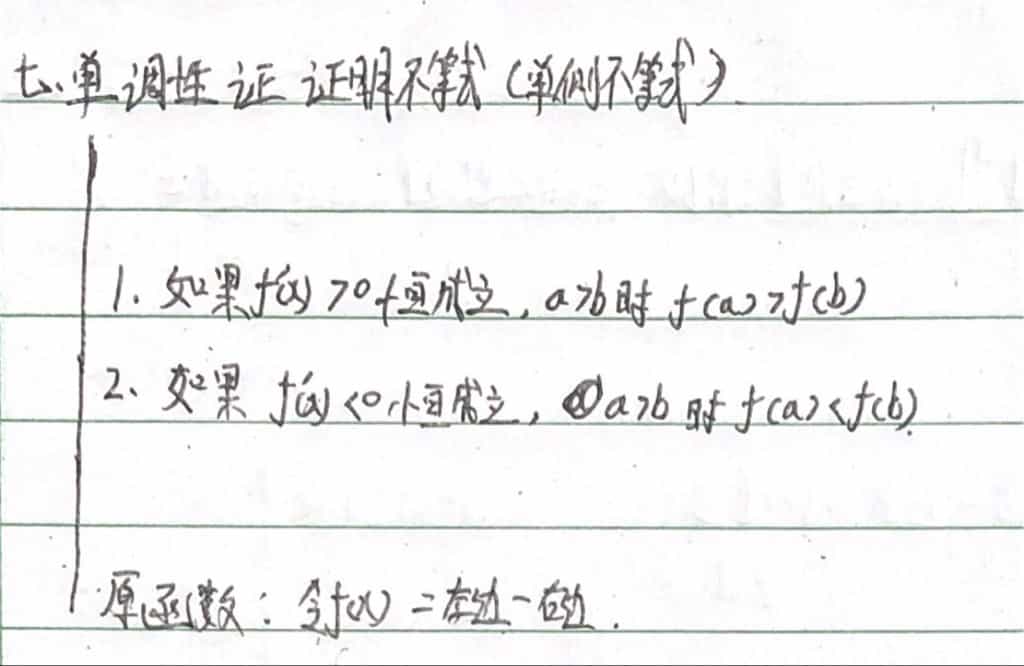 七、单调性 证 证明不等式（单侧不等式）
1. 如果f'(x)>0恒成立, a>b时 f(a)>f(b)
2、如果 f'(x)<0恒成立, a>b 时 f(a)<f(b).
原函数: 令f(x)=左边-右边.